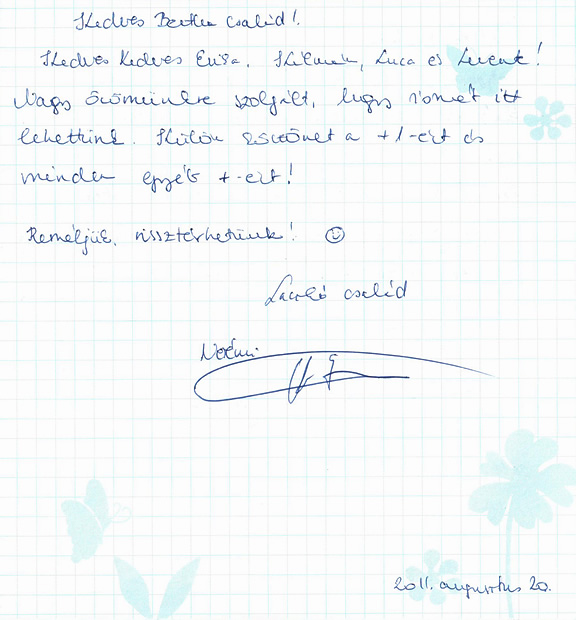 Kedves Bertha család!
Kedves Kedves Enisa, , Luca és Levente!
Nagy örömünkre szolgált, hogy ismét itt
lehettünk. Külön köszönet a +1-ért és
minden egyéb +-ért!
Reméljük, visszatérhetünk! ☺
László család
Noémi
2011. augusztus 20.